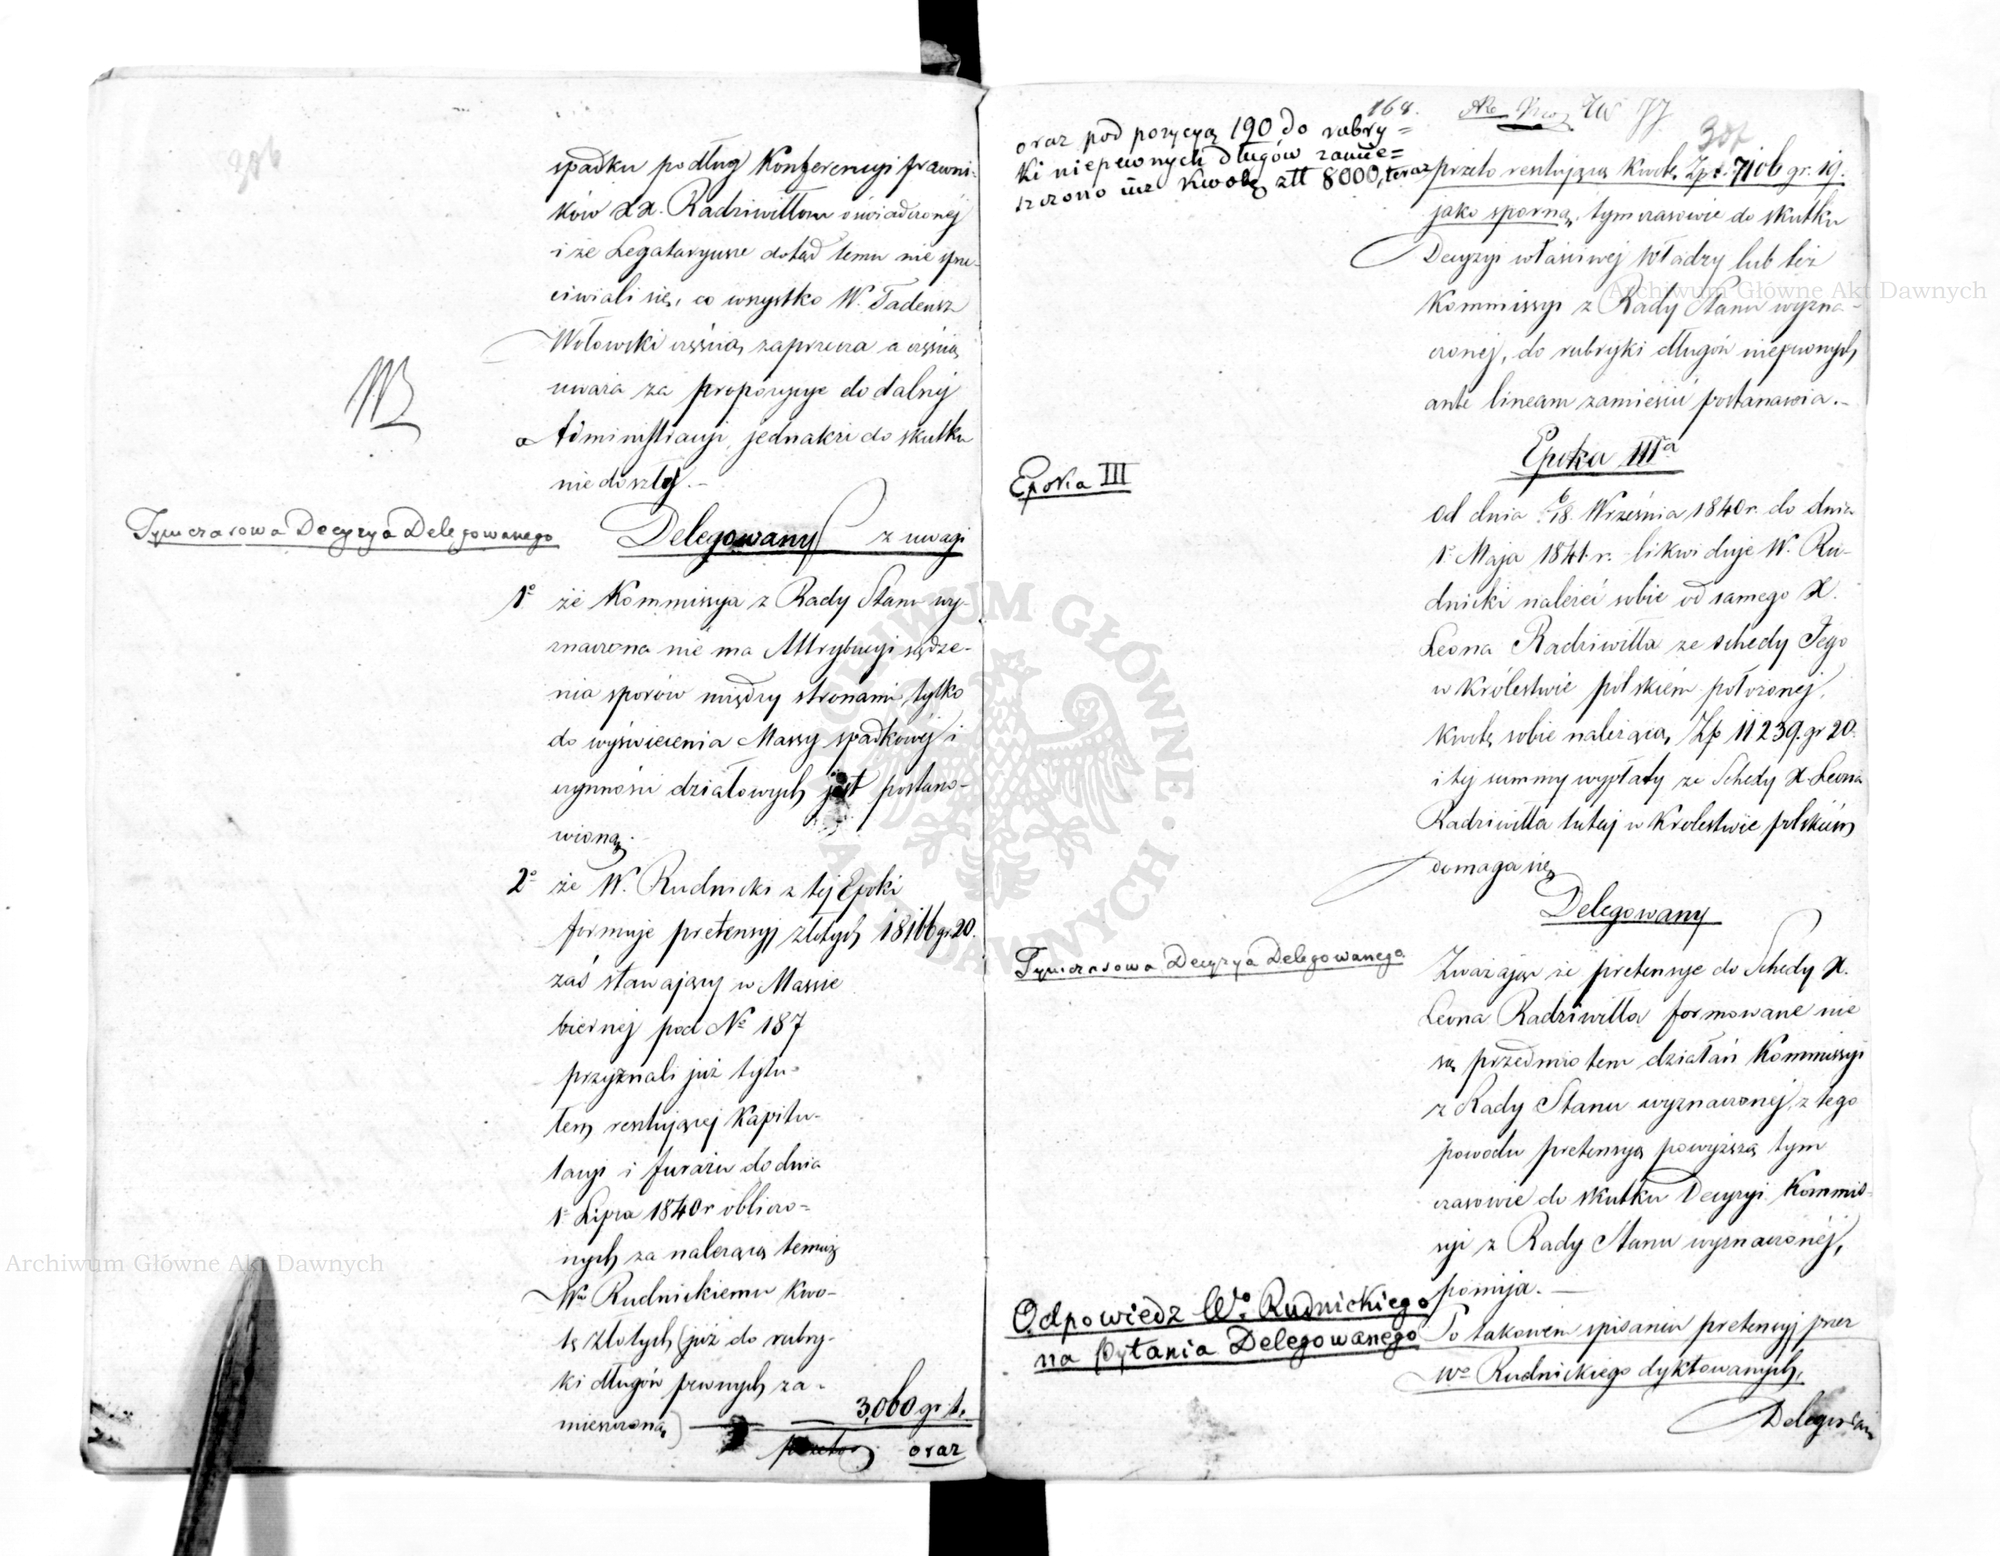 306
spadku podług Konferencyi prawni-
ków XX. Radziwiłłom oświadczonéj
i że Legataryusze dotąd temu nie sprze-
ciwiali się, co wszystko W. Tadeusz
Wołowski częścią zaprzecza a częścią
uważa za propozycye do dalszej
Administracyi, jednakże do skutku
nie doszłą.-
Tymczasowa Decyzya Delegowanego
Delegowany z uwagi
1° że Kommissya z Rady Stanu wy-
znaczona nie ma Attrybucyi sądze-
nia sporów między stronami, tylko
do wyświecenia Massy spadkowéj i
czynności działowych jest postano-
wioną.
2° że W. Rudnicki z tej Epoki
formuje pretensyj złotych 18166 gr 20.
zaś stawający w Massie
biernéj pod N° 187
przyznali już tytu-
łem resztującej Kapitu-
lacyi i furażu do dnia
1° Lipca 1840 r obliczo-
nych za należącą temuż
Wu Rudnickiemu Kwo-
tę złotych (już do rubry-
ki długów pewnych za-
mieszczoną) 3,060 gr 1.
przeto oraz
164.
307
oraz pod pozycyą 190 do rubry=
ki niepewnych długów zamie=
szczono już Kwotę złł 8000, teraz
przeto resztującą Kwotę Zpt. 7106 gr. 19.
jako sporną, tymczasowie do skutku
Decyzyi właściwej Władzy lub też
Kommissyi z Rady Stanu wyzna-
czonej, do rubryki długów niepewnych
ante lineam zamieścić postanawia.-
Epoka III
Epoka IIIa
Od dnia 6/18. Września 1840 r. do dnia
1° Maja 1841. r. likwiduje W. Ru-
dnicki należeć sobie od samego X.
Leona Radziwiłła ze schedy Jego
w Królestwie polskiém położonej,
Kwotę sobie należącą Zp 11239. gr 20.
i tej summy wypłaty ze Schedy X. Leona
Radziwiłła tutaj w Krolestwie polskiém
domaga się
Delegowany
Tymczasowa Decyzya Delegowanego
Zważając że pretensye do Schedy X.
Leona Radziwiłła formowane nie
są przedmiotem działań Kommissyi
z Rady Stanu wyznaczonej, z tego
powodu pretensyą powyższą tym
czasowie do skutku Decyzyi Kommis-
syi z Rady Stanu wyznaczonéj,
pomija.-
Odpowiedz Wo. Rudnickiego
na Pytania Delegowanego
Po takowem spisaniu pretensyj przez
Wo Rudnickiego dyktowanych,
Delegowany
Archiwum Główne Akt Dawnych
Archiwum Główne Akt Dawnych
ARCHIWUM GŁÓWNE · AKT DAWNYCH ·